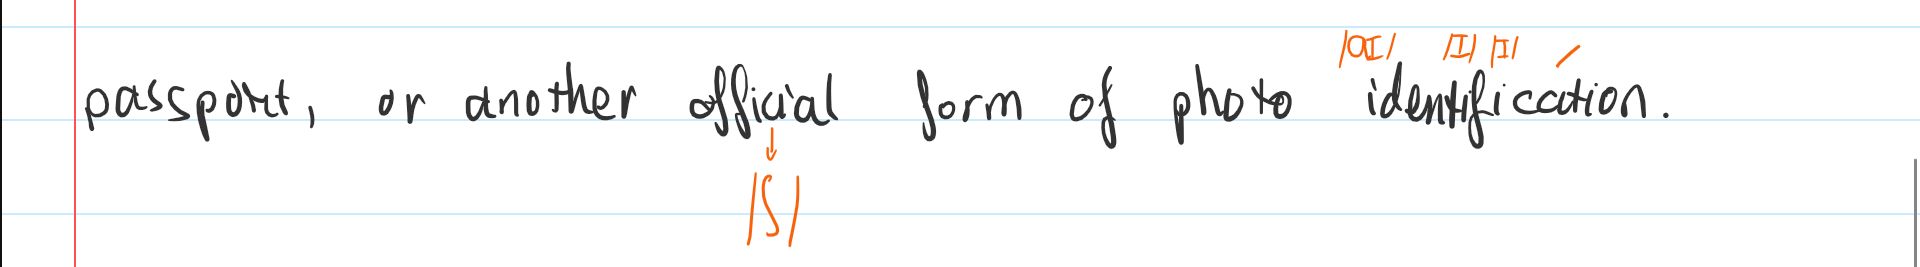 /aɪ/ /ɪ/ /ɪ/
passport, or another official form of photo identification.
/ʃ/